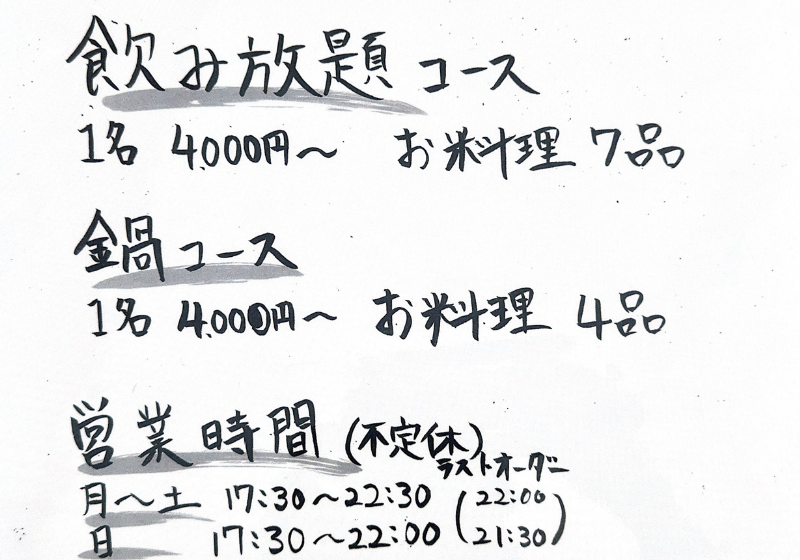 飲み放題 コース
1名 4,000円〜 お料理 7品
鍋コース
1名 4,000円〜 お料理 4品
営業時間 (不定休)
ラストオーダー
月〜土 17:30〜22:30 (22:00
日 17:30〜22:00 21:30)